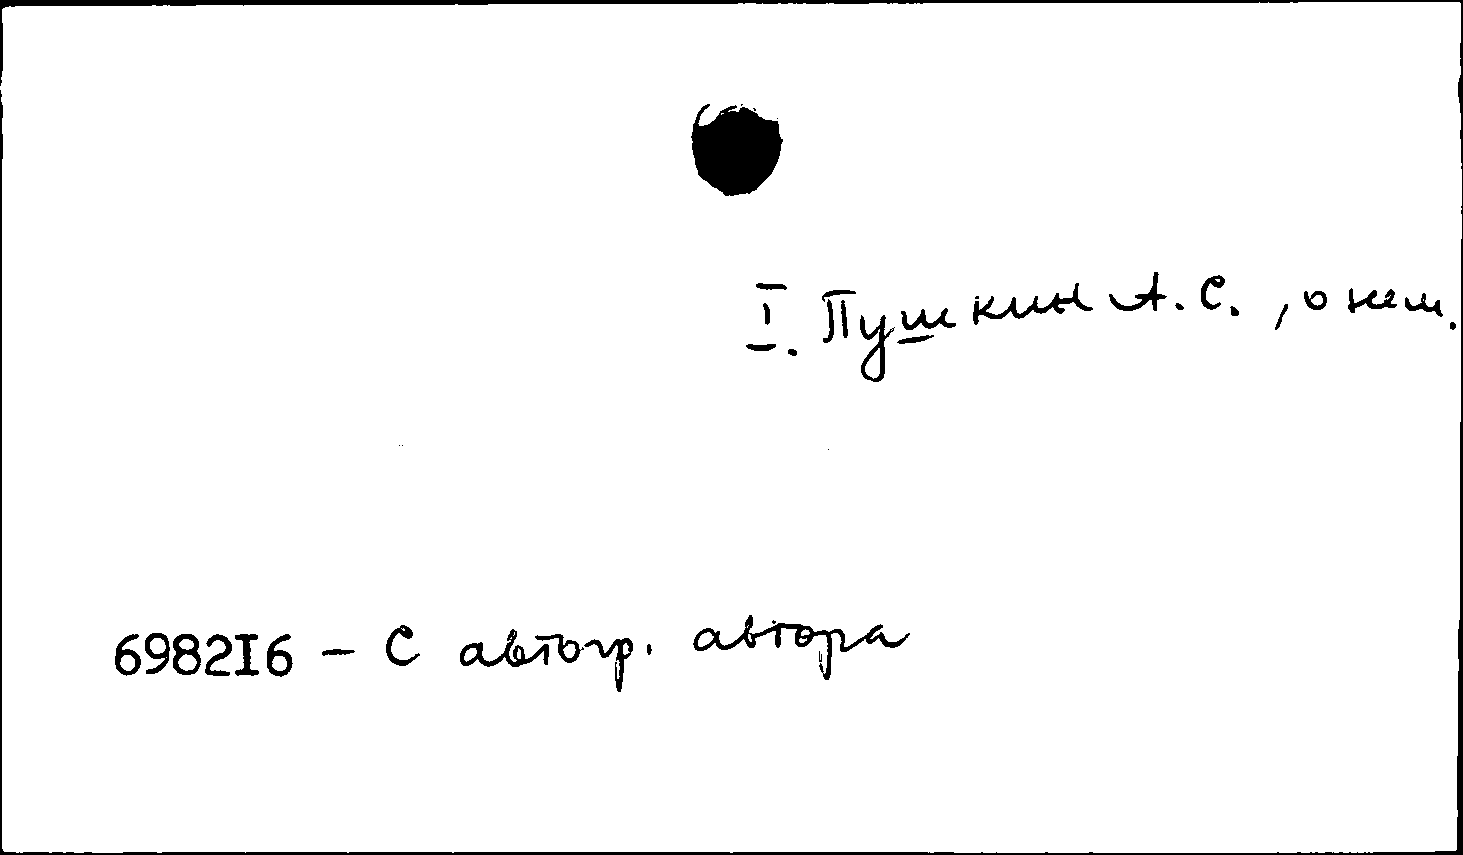 I. Пушкин А.С., о нем.
698216 – С автогр. автора